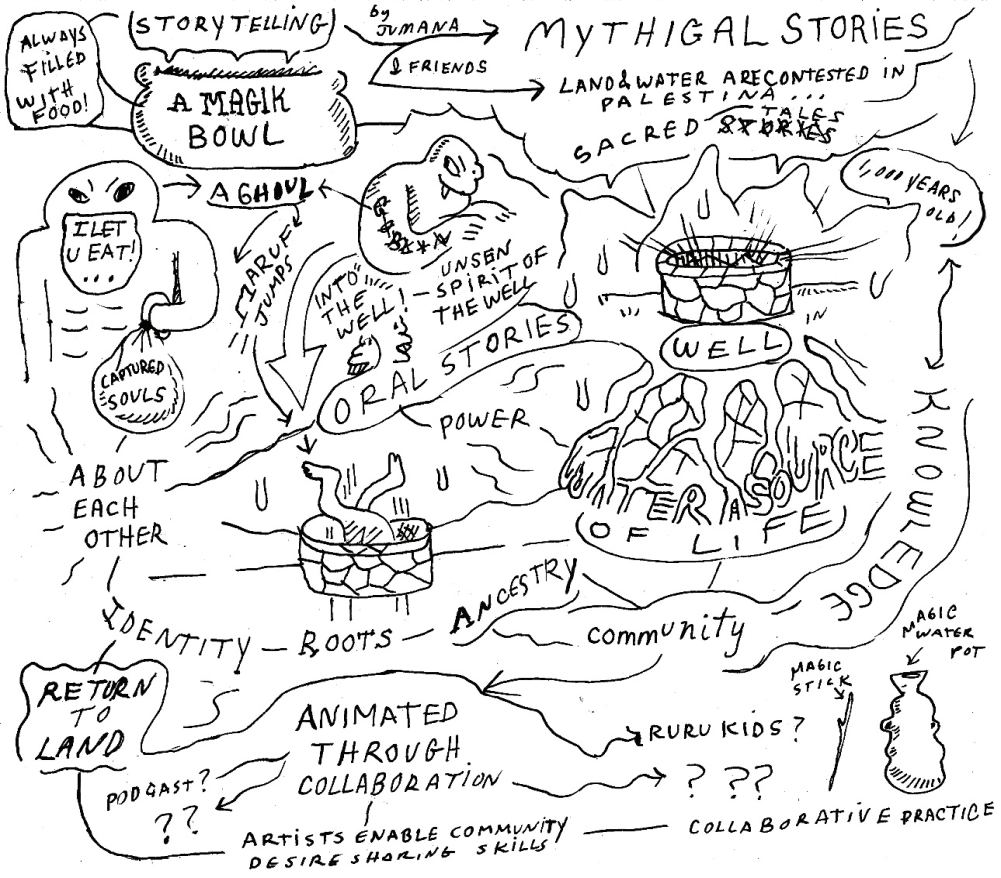 ALWAYS
FILLED
WITH
FOOD!
STORYTELLING
by
JUMANA
& FRIENDS
MYTHIGAL STORIES
A MAGIK
BOWL
LAND & WATER ARE CONTESTED IN
PALESTINA ...
TALES
SACRED STORIES
1,000 YEARS
OLD!
A GHOUL
I LET
U EAT!
...
MARUF
JUMPS
INTO
THE
WELL!
UNSEN
SPIRIT OF
THE WELL
CAPTURED
SOULS
ORAL STORIES
POWER
IN
WELL
WATER A SOURCE
OF LIFE
KNOWLEDGE
ABOUT
EACH
OTHER
IDENTITY – ROOTS – ANCESTRY
community
RETURN
TO
LAND
ANIMATED
THROUGH
COLLABORATION
RURU KIDS?
? ??
MAGIC
STICK
MAGIC
WATER
POT
PODGAST?
??
ARTISTS ENABLE COMMUNITY
DESIRE SHARING SKILLS
COLLABORATIVE PRACTICE